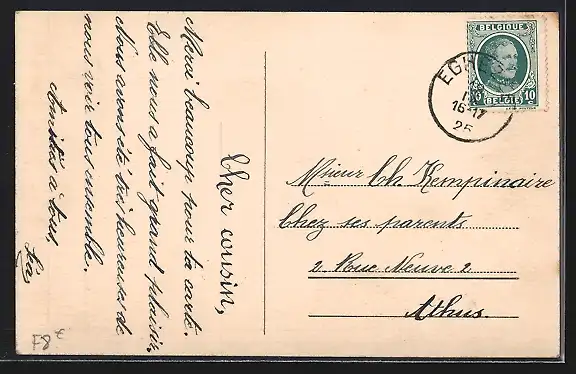 Cher cousin,
Merci beaucoup pour ta carte.
Elle nous a fait grand plaisir.
Nous avons été très heureuses de
nous voir tous ensemble.
Amitiés à tous,
BELGIQUE
10
BELGIË
EGHE
16-17
25
Msieur Ch. Kempinaire
Chez ses parents
2 Rue Neuve 2
Athus.
F8